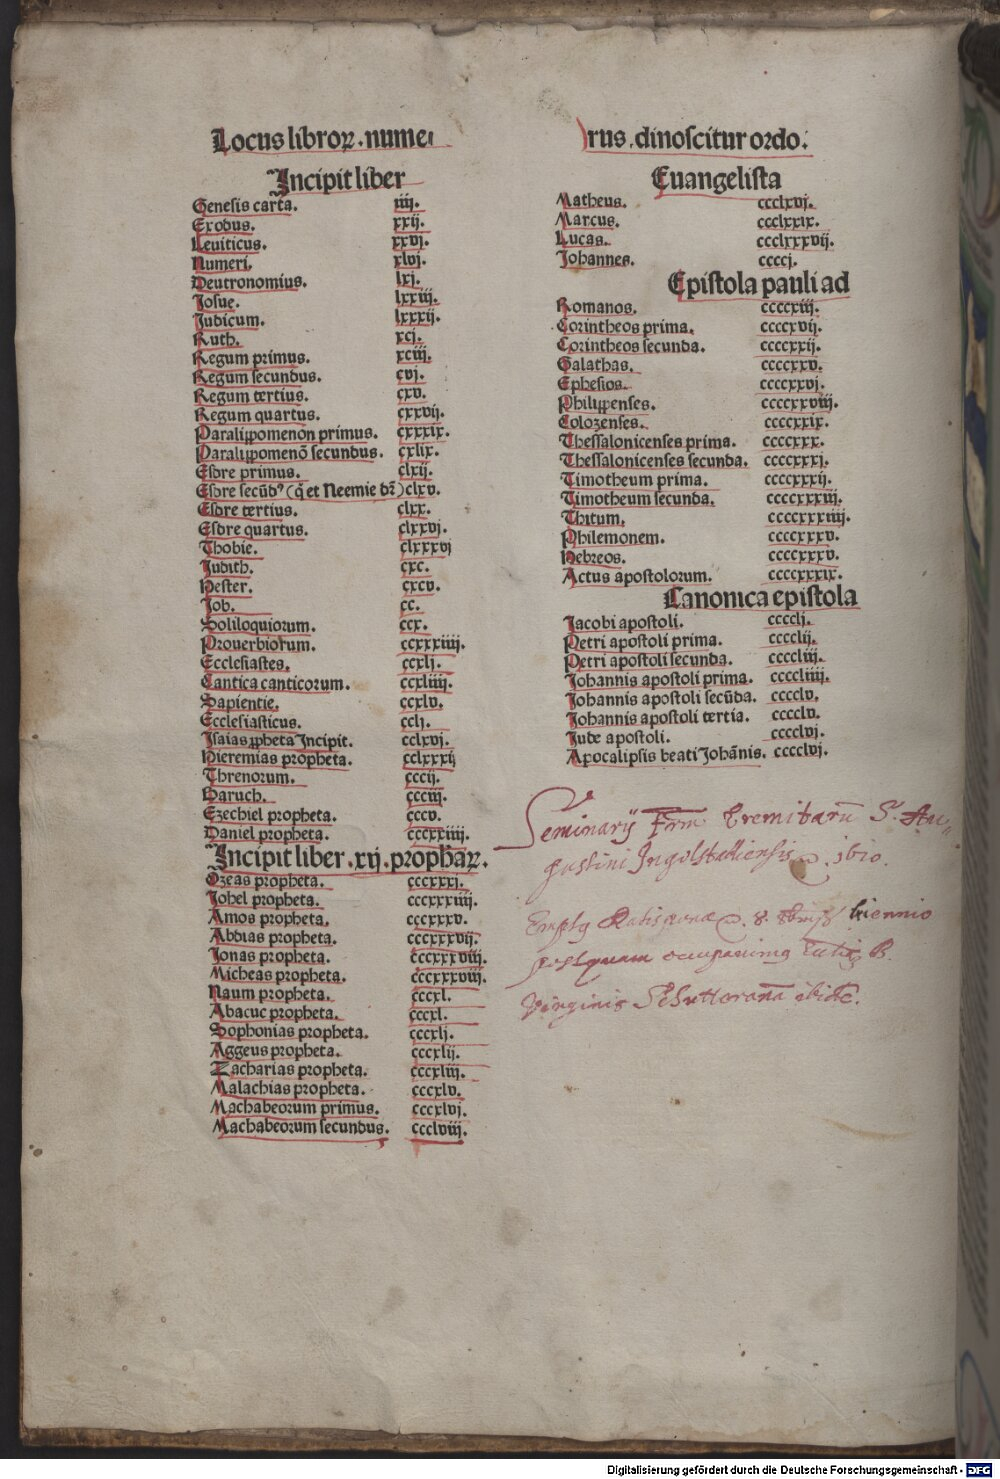 Locus libroꝝ .nume
rus .dinoscitur ordo.
Incipit liber
Genesis carta. iiij.
Exodus. xxij.
Leuiticus. xxvj.
Numeri. xlvj.
Deutronomius. lxj.
Josue. lxxiij.
Judicum. lxxxij.
Ruth. xcj.
Regum primus. xciij.
Regum secundus. cvj.
Regum tertius. cxv.
Regum quartus. cxxvij.
Paralippomenon primus. cxxxix.
Paralippomenō secundus. cxlix.
Esdre primus. clxij.
Esdre secūdꝰ (q̄ et Neemie dr̄) clxv.
Esdre tertius. clxx.
Esdre quartus. clxxvj.
Thobie. clxxxvj
Judith. cxc.
Hester. cxcv.
Job. cc.
Soliloquiorum. ccx.
Prouerbiorum. ccxxxiiij.
Ecclesiastes. ccxlj.
Cantica canticorum. ccxliiij.
Sapientie. ccxlv.
Ecclesiasticus. cclj.
Isaias ꝓpheta Incipit. cclxvj.
Hieremias propheta. cclxxxij
Threnorum. cccij.
Baruch. ccciij.
Ezechiel propheta. cccv.
Daniel propheta. cccxxiiij.
Incipit liber .xij. prophaꝝ.
Ozeas propheta. cccxxxj.
Johel propheta. cccxxxiiij.
Amos propheta. cccxxxv.
Abdias propheta. cccxxxvij.
Jonas propheta. cccxxxviij.
Micheas propheta. cccxxxviij.
Naum propheta. cccxl.
Abacuc propheta. cccxl.
Sophonias propheta. cccxlj.
Aggeus propheta. cccxlij.
Zacharias propheta. cccxliij.
Malachias propheta. cccxlv.
Machabeorum primus. cccxlvj.
Machabeorum secundus. ccclviij.
Euangelista
Matheus. ccclxvj.
Marcus. ccclxxix.
Lucas. ccclxxxvij.
Johannes. ccccj.
Epistola pauli ad
Romanos. ccccxiij.
Corintheos prima. ccccxvij.
Corintheos secunda. ccccxxij.
Galathas. ccccxxv.
Ephesios. ccccxxvj.
Philippenses. ccccxxviij.
Colozenses. ccccxxix.
Thessalonicenses prima. ccccxxx.
Thessalonicenses secunda. ccccxxxj.
Timotheum prima. ccccxxxij.
Timotheum secunda. ccccxxxiij.
Thitum. ccccxxxiiij.
Philemonem. ccccxxxv.
Hebreos. ccccxxxv.
Actus apostolorum. ccccxxxix.
Canonica epistola
Jacobi apostoli. cccclj.
Petri apostoli prima. cccclij.
Petri apostoli secunda. ccccliij.
Johannis apostoli prima. ccccliiij.
Johannis apostoli secūda. cccclv.
Johannis apostoli tertia. cccclv.
Jude apostoli. cccclvj.
Apocalipsis beati Johānis. cccclvj.
Seminarij Frm̄ Eremitarū S. Au-
gustini Ingolstadiensis. 1610.
Ratisponæ 8. biennio
postquam
Virginis Schutterana
Digitalisierung gefördert durch die Deutsche Forschungsgemeinschaft - DFG